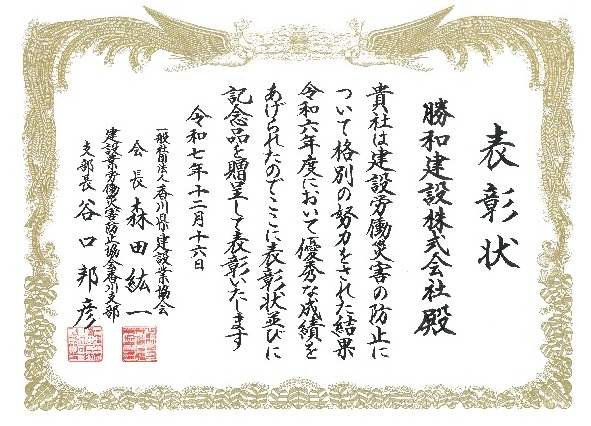 表彰状
勝和建設株式会社殿
貴社は建設労働災害の防止に
ついて格別の努力をされた結果
令和六年度において優秀な成績を
あげられたのでここに表彰状並びに
記念品を贈呈して表彰いたします
令和七年十二月十六日
一般社団法人香川県建設業協会
会長 森田紘一
建設業労働災害防止協会香川支部
支部長 谷口邦彦